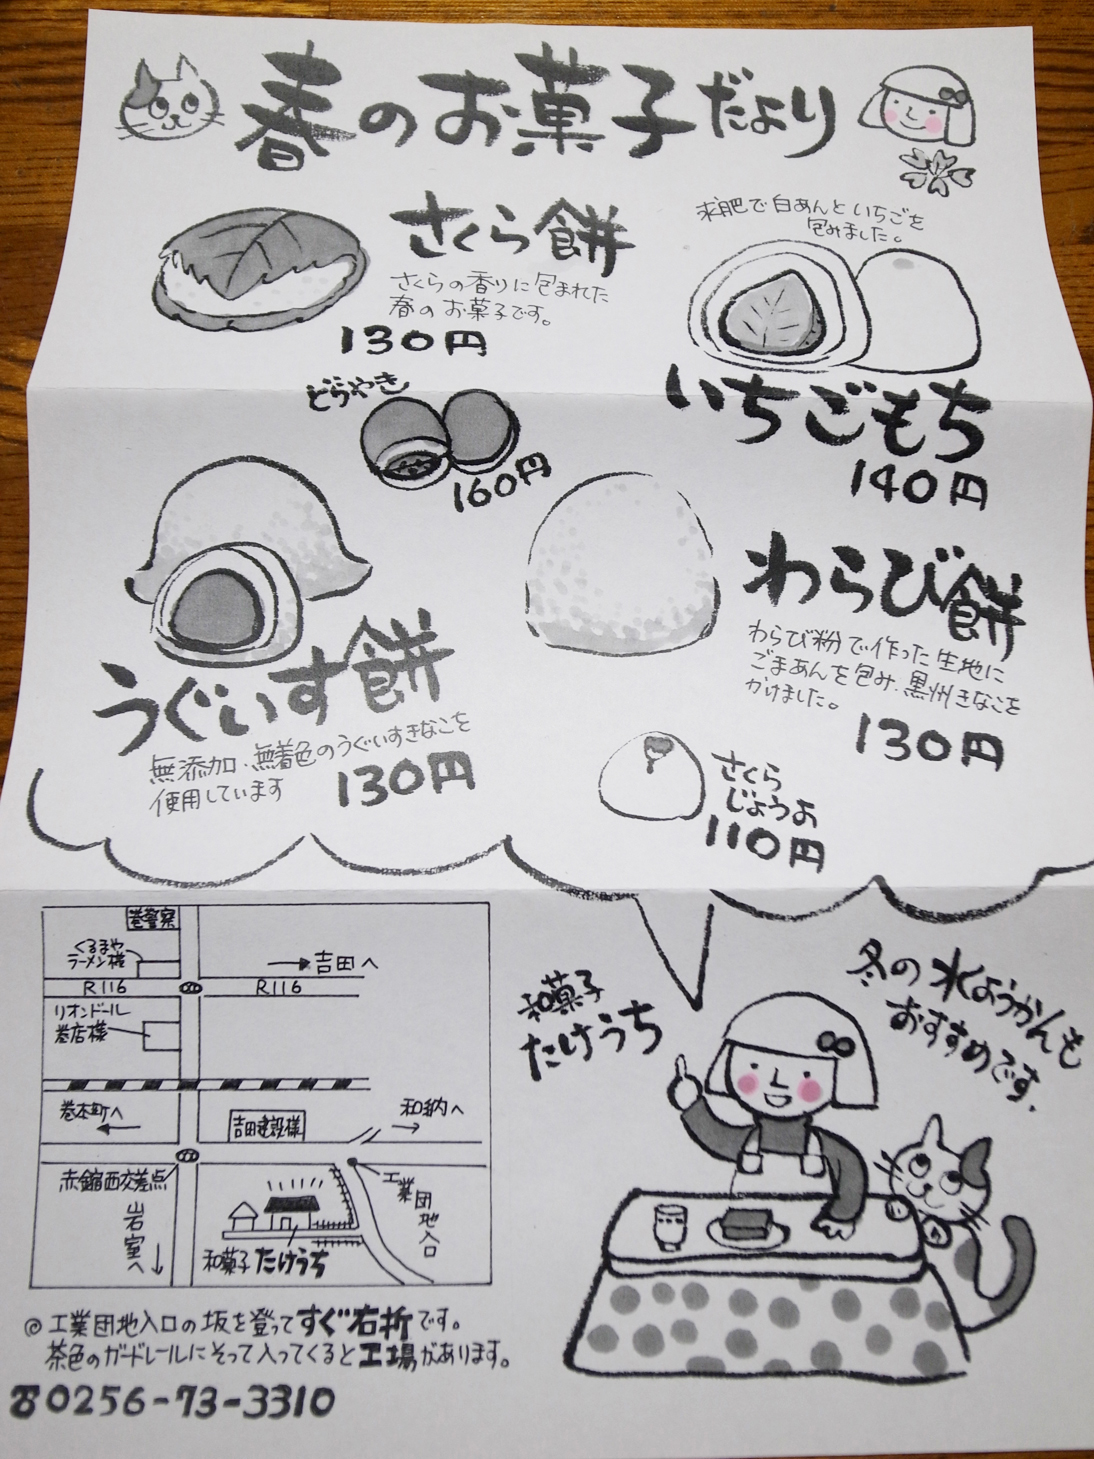 春のお菓子だより
さくら餅
さくらの香りに包まれた
春のお菓子です。
130円
求肥で白あんといちごを
包みました。
いちごもち
140円
どらやき
160円
うぐいす餅
無添加・無着色のうぐいすきなこを
使用しています
130円
わらび餅
わらび粉で作った生地に
ごまあんを包み、黒州きなこを
かけました。
130円
さくら
じょうよ
110円
巻警察
くるまや
ラーメン様
→吉田へ
R116
R116
リオンドール
巻店様
巻本町へ
←
吉田建設様
和納へ
→
赤鏥西交差点
岩室へ
工業団地入口
和菓子 たけうち
和菓子
たけうち
冬の水ようかんも
おすすめです.
◎工業団地入口の坂を登ってすぐ右折です。
茶色のガードレールにそって入ってくると工場があります。
☎0256-73-3310